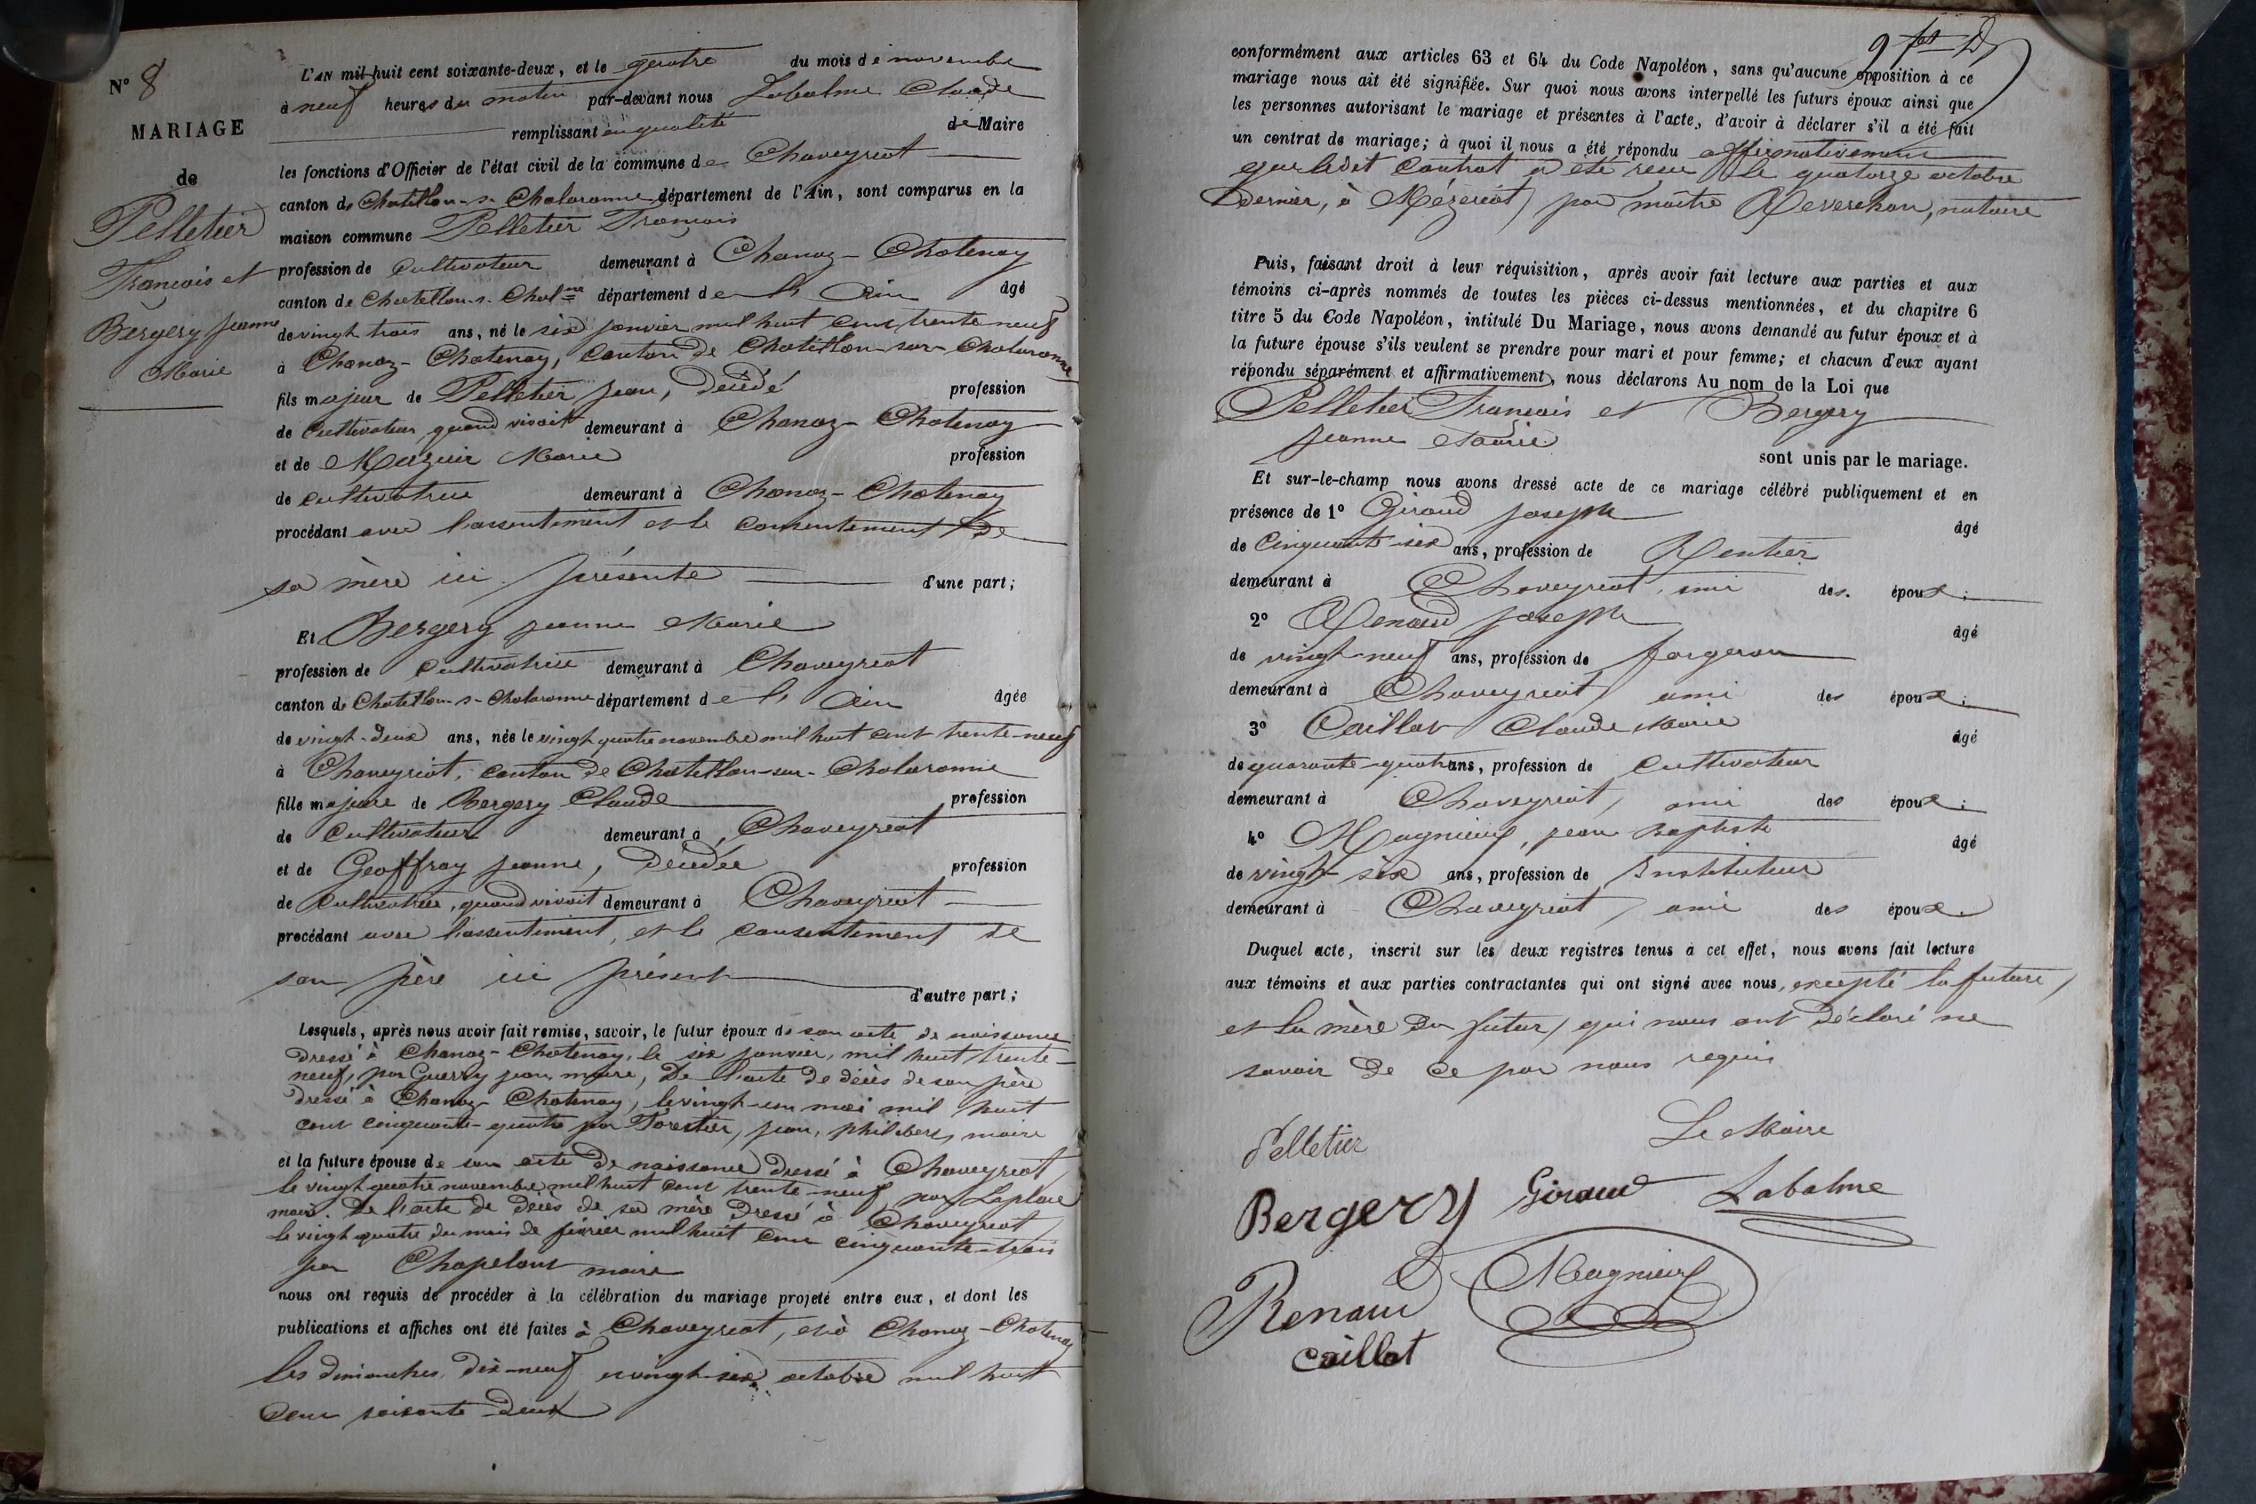 N° 8
MARIAGE
de
Pelletier
François et
Bergery Jeanne
Marie
L'AN mil huit cent soixante-deux, et le quatre du mois de novembre
à neuf heures du matin par-devant nous Labalme Claude
remplissant en qualité de Maire
les fonctions d'Officier de l'état civil de la commune de Chaveyriat
canton de Chatillon-s-Chalaronne département de l'Ain, sont comparus en la
maison commune Pelletier François
profession de Cultivateur demeurant à Chanoz-Chatenay
canton de Chatillon-s-Chalne département de l'Ain âgé
de vingt trois ans, né le six janvier mil huit cent trente neuf
à Chanoz-Chatenay, Canton de Chatillon-sur-Chalaronne
fils majeur de Pelletier Jean, décédé profession
de Cultivateur, quand vivait demeurant à Chanoz-Chatenay
et de Mazuir Marie profession
de cultivatrice demeurant à Chanoz-Chatenay
procédant avec l'assentiment et le consentement de
sa mère ici présente d'une part;
Et Bergery Jeanne Marie
profession de Cultivatrice demeurant à Chaveyriat
canton de Chatillon-s-Chalaronne département de l'Ain âgée
de vingt-deux ans, née le vingt quatre novembre mil huit cent trente-neuf
à Chaveyriat, canton de Chatillon-sur-Chalaronne
fille majeure de Bergery Claude profession
de Cultivateur demeurant à Chaveyriat
et de Geoffray Jeanne, décédée profession
de Cultivatrice, quand vivait demeurant à Chaveyriat
procédant avec l'assentiment, et le consentement de
son père ici présent
d'autre part;
Lesquels, après nous avoir fait remise, savoir, le futur époux de son acte de naissance
dressé à Chanoz-Chatenay, le six janvier, mil huit trente-
neuf, par Guerry Jean, maire, De l'acte de décès de son père
dressé à Chanoz-Chatenay, le vingt-un mai mil huit
cent cinquante-quatre par Forestier, Jean, Philibert, maire
et la future épouse de son acte de naissance dressé à Chaveyriat
le vingt quatre novembre mil huit cent trente-neuf par Laplace
maire. De l'acte de décès de sa mère dressé à Chaveyriat
le vingt quatre du mois de février mil huit cent cinquante-trois
par Chapelant maire
nous ont requis de procéder à la célébration du mariage projeté entre eux, et dont les
publications et affiches ont été faites à Chaveyriat, et à Chanoz-Chatenay
les dimanches, dix-neuf et vingt-six octobre mil huit
cent soixante-deux
conformément aux articles 63 et 64 du Code Napoléon, sans qu'aucune opposition à ce
mariage nous ait été signifiée. Sur quoi nous avons interpellé les futurs époux ainsi que
les personnes autorisant le mariage et présentes à l'acte, d'avoir à déclarer s'il a été fait
un contrat de mariage; à quoi il nous a été répondu affirmativement
que ledit contrat a été reçu le quatorze octobre
Dernier, à Mézériat, par maître Reverchon, notaire
Puis, faisant droit à leur réquisition, après avoir fait lecture aux parties et aux
témoins ci-après nommés de toutes les pièces ci-dessus mentionnées, et du chapitre 6
titre 5 du Code Napoléon, intitulé Du Mariage, nous avons demandé au futur époux et à
la future épouse s'ils veulent se prendre pour mari et pour femme; et chacun d'eux ayant
répondu séparément et affirmativement, nous déclarons Au nom de la Loi que
Pelletier François et Bergery
Jeanne Marie
sont unis par le mariage.
Et sur-le-champ nous avons dressé acte de ce mariage célébré publiquement et en
présence de 1° Giraud Joseph âgé
de Cinquante-six ans, profession de Rentier
demeurant à Chaveyriat, ami des époux;
2° Renaud Joseph âgé
de vingt-neuf ans, profession de forgeron
demeurant à Chaveyriat, ami des époux;
3° Caillat Claude Marie âgé
de quarante-quatre ans, profession de Cultivateur
demeurant à Chaveyriat, ami des époux;
4° Magnieux, Jean Baptiste âgé
de vingt-six ans, profession de Instituteur
demeurant à Chaveyriat, ami des époux.
Duquel acte, inscrit sur les deux registres tenus à cet effet, nous avons fait lecture
aux témoins et aux parties contractantes qui ont signé avec nous, excepté la future,
et la mère du futur, qui nous ont déclaré ne
savoir de ce par nous requis
Le Maire
Pelletier
Bergery Giraud Labalme
Renaud Magnieux
Caillat